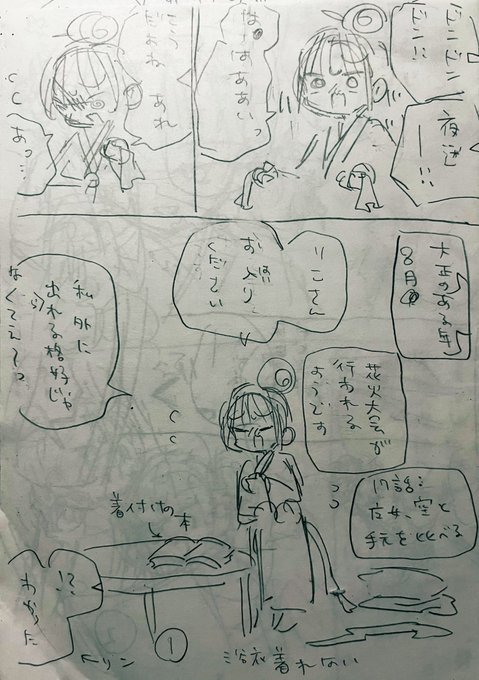 ドンドン!!
夜逃
ー!!
なーはああいっ
こう
だよね あれ
あっ…
大正のある年
8月
りこさん
お入り
ください
私 外に
出れる格好じゃ
なくてえーっ
花火大会が
行われる
ようです
17話:
乙女、空と
手元を比べる
着付けの本
!?
わかった
リン
浴衣着れない
1